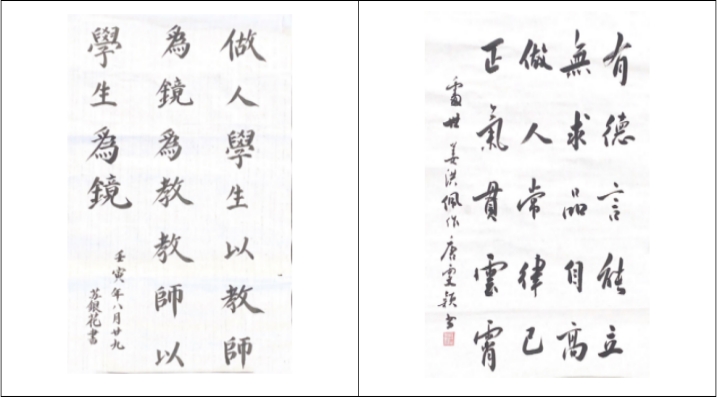 做人學生以教師
爲鏡爲教教師以
學生爲鏡
壬寅年八月廿九
苏銀花書
有德言能立
無求品自高
做人常律己
正氣貫雲霄
姜洪佩作 唐雯颖书